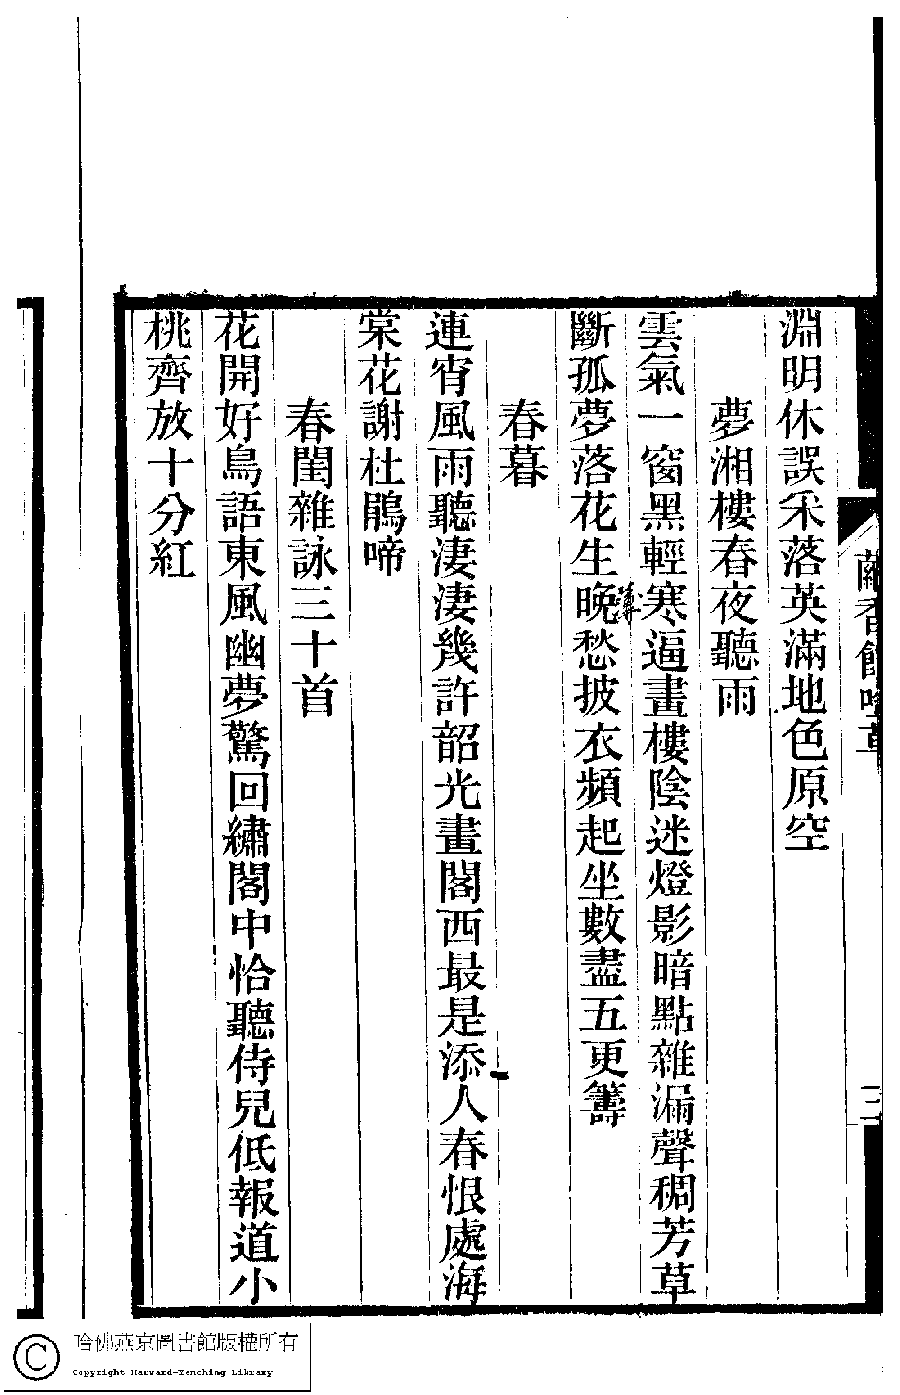 香館吟草
淵明休誤采落英滿地色原空
夢湘樓春夜聽雨
雲氣一窗黑輕寒逼畫樓陰迷燈影暗點雜漏聲稠芳草
薄
斷孤夢落花生晚愁披衣頻起坐數盡五更籌
春暮
連宵風雨聽淒淒幾許韶光畫閣西最是添人春恨處海
棠花謝杜鵑啼
春閨雜詠三十首
花開好鳥語東風幽夢驚回繡閣中恰聽侍兒低報道小
桃齊放十分紅
哈佛燕京圖書館版權所有
Copyright Harvard-Yenching Library